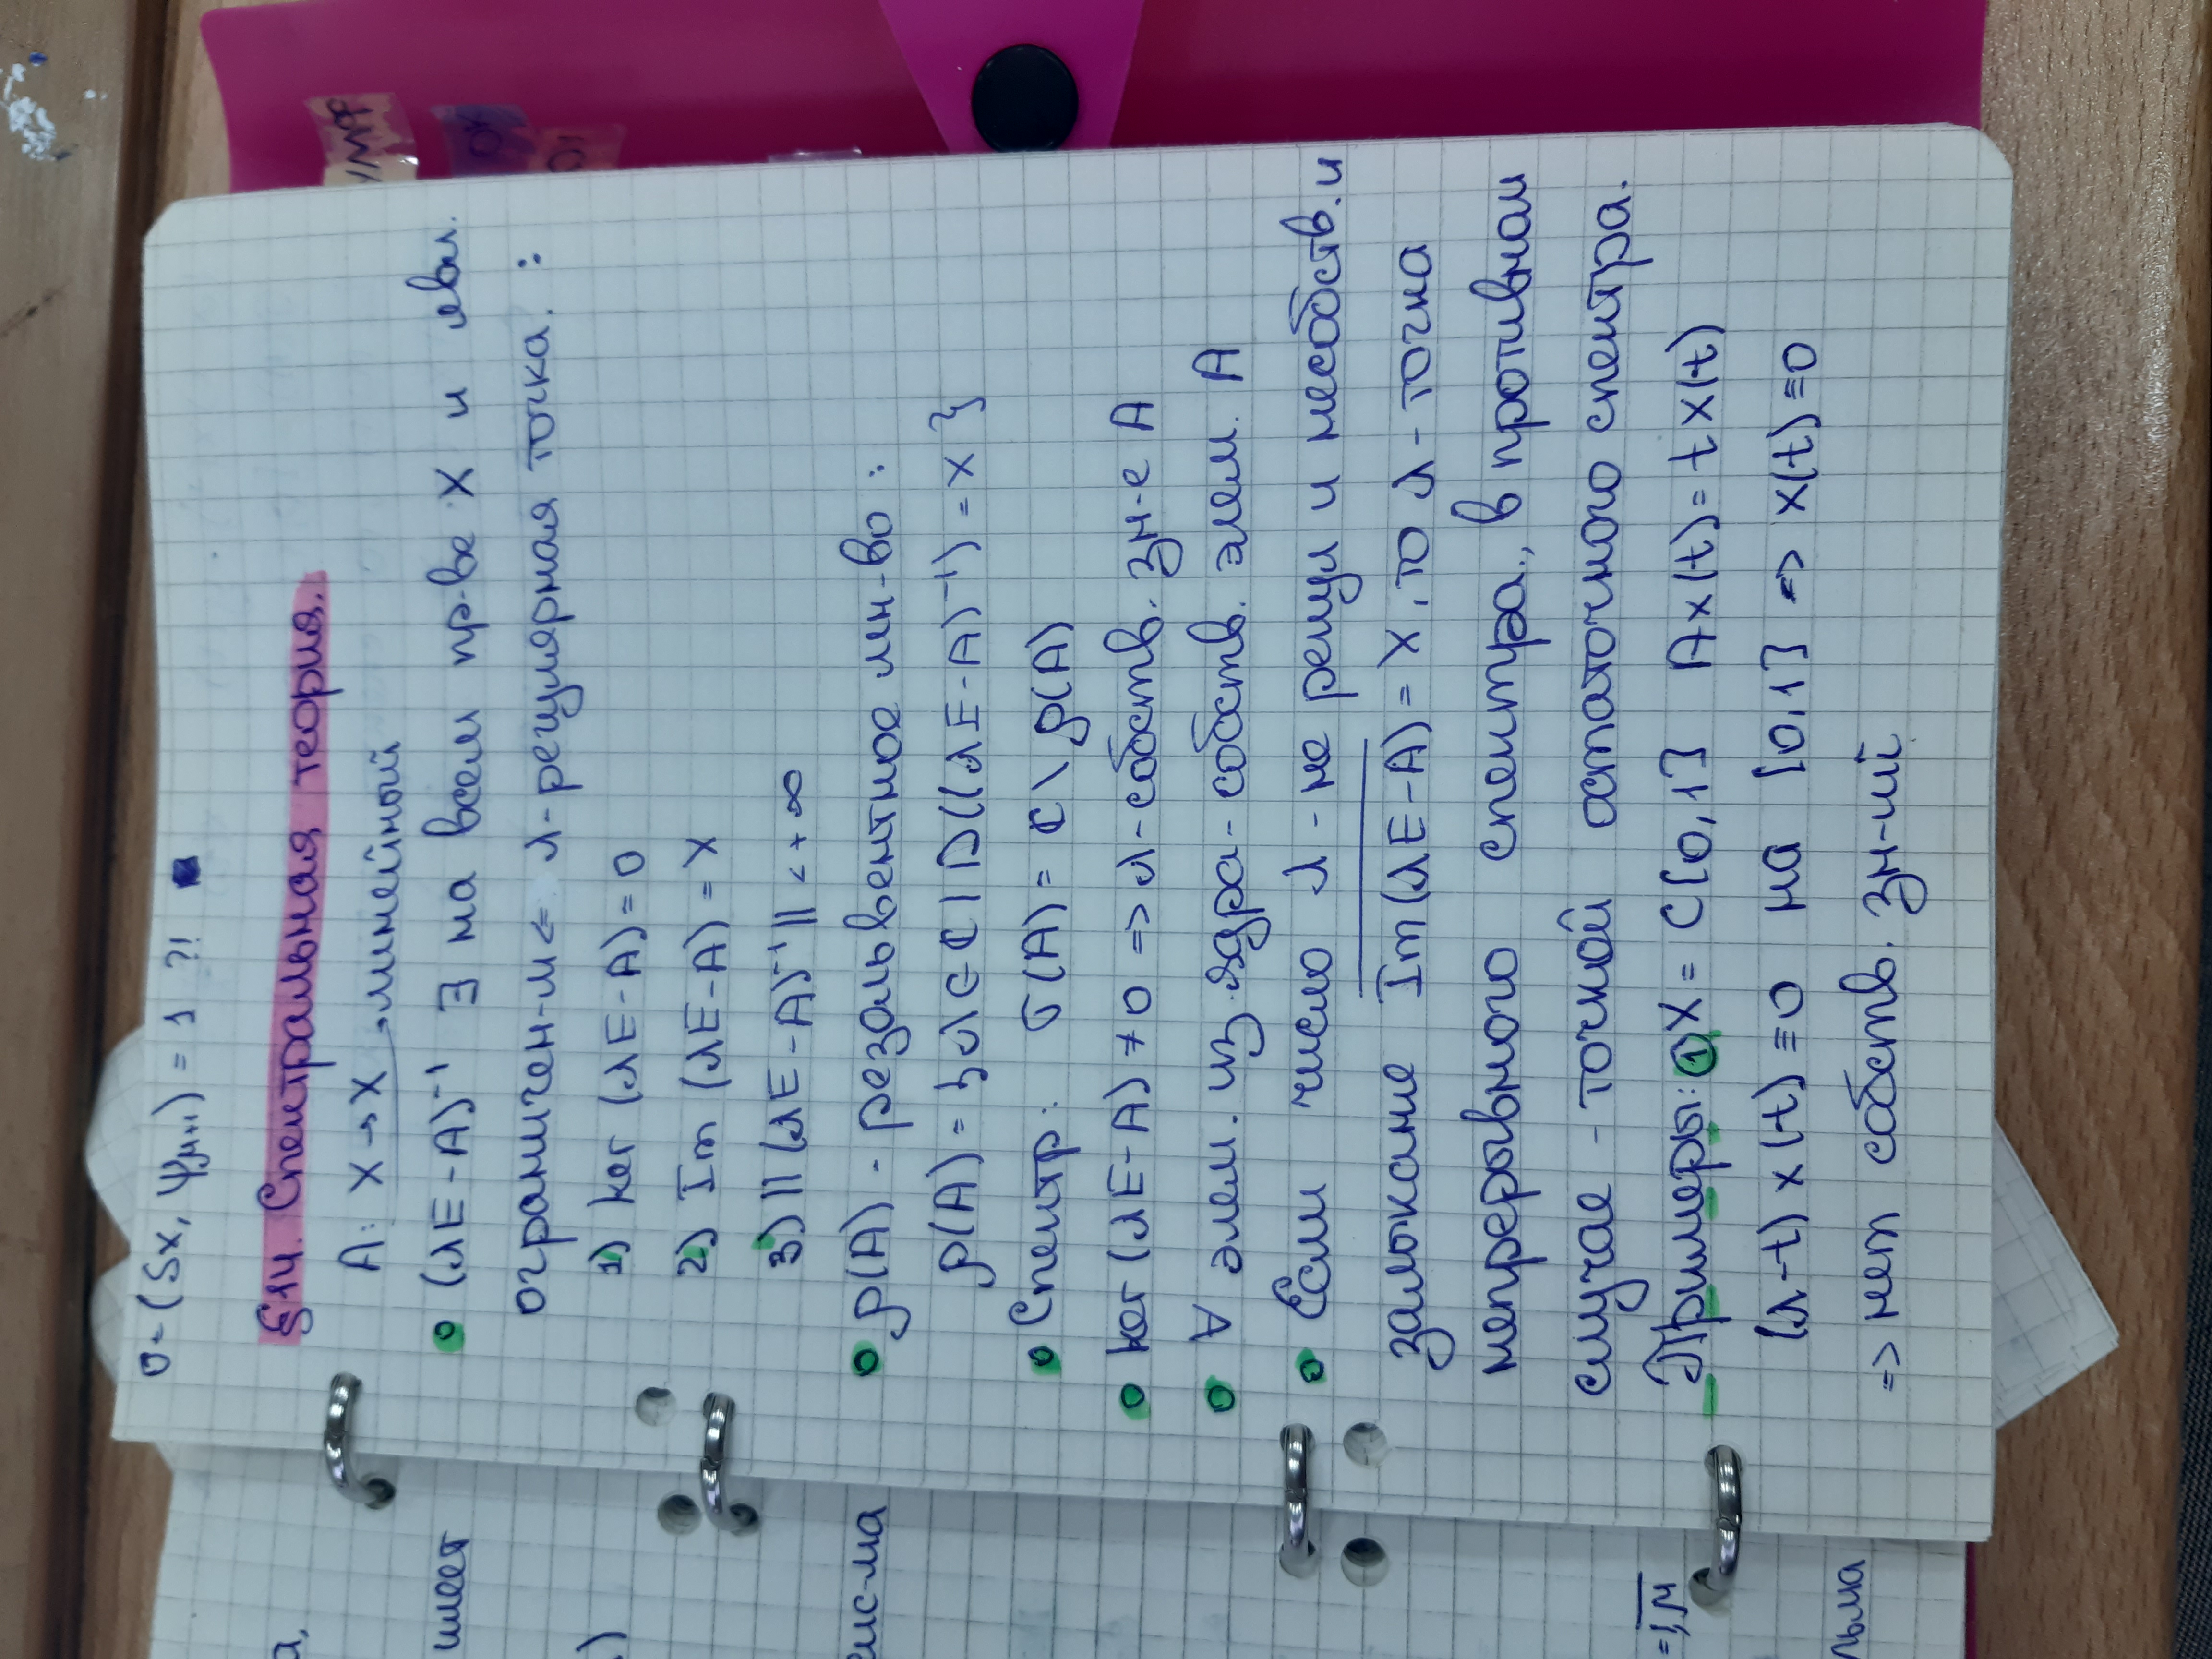 0 = (Sx, ψ_{N+1}) = 1 ?!
§14. Спектральная теория.
A: X → X → линейный
(λE-A)⁻¹ ∃ на всем пр-ве X и явл.
ограничен-м <= λ - регулярная точка. :
1) ker (λE-A) = 0
2) Im (λE-A) = X
3) || (λE-A)⁻¹ || < +∞
ρ(A) - резольвентное мн-во :
ρ(A) = {λ ∈ ℂ | D((λE-A)⁻¹) = X}
Спектр. σ(A) = ℂ \ ρ(A)
ker (λE-A) ≠ 0 => λ - собств. зн-е A
∀ элем. из ядра - собств. элем. A
Если число λ - не регул и несобств. и
замыкание Im(λE-A) = X, то λ - точка
непрерывного спектра., в противном
случае - точкой остаточного спектра.
Примеры: ① X = C[0,1] Ax(t) = t x(t)
(λ-t) x(t) ≡ 0 на [0,1] => x(t) ≡ 0
=> нет собств. зн-ий
а,
имеет
)
=1,N
льма